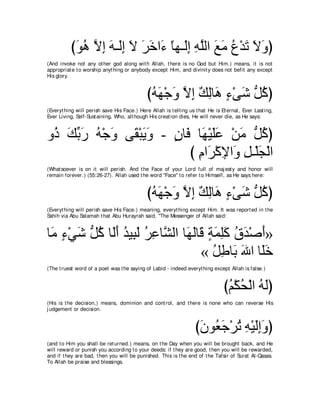 (وَلاَ تَدْعُ مَعَ اللَّهِ إِلَـهاً ءَاخَرَ لاَ إِلَـهَ إِلاَّ هُوَ)
(And invoke not any other god along with Allah, there is no God but Him.) means, it is not
appropriate to worship anything or anybody except Him, and divinity does not befit any except
His glory.
(كُلُّ شَىْءٍ هَالِكٌ إِلاَّ وَجْهَهُ)
(Everything will perish save His Face.) Here Allah is telling us that He is Eternal, Ever Lasting,
Ever Living, Self-Sustaining. Who, although His creation dies, He will never die, as He says:
(كُلُّ مَنْ عَلَيْهَا فَانٍ - وَيَبْقَى وَجْهُ رَبِّكَ ذُو
الْجَلْـلِ وَالإِكْرَامِ )
(Whatsoever is on it will perish. And the Face of your Lord full of majesty and honor will
remain forever.) (55:26-27). Allah used the word "Face" to refer to Himself, as He says here:
(كُلُّ شَىْءٍ هَالِكٌ إِلاَّ وَجْهَهُ)
(Everything will perish save His Face.) meaning, everything except Him. It was reported in the
Sahih via Abu Salamah that Abu Hurayrah said, "The Messenger of Allah said:
«أَصْدَقُ كَلِمَةٍ قَالَهَا الشَّاعِرُ لَبِيدٌ أَلَا كُلُّ شَيْءٍ مَا
خَلَا اللهَ بَاطِلُ »
(The truest word of a poet was the saying of Labid - indeed everything except Allah is false.)
(لَهُ الْحُكْمُ)
(His is the decision,) means, dominion and control, and there is none who can reverse His
judgement or decision.
(وَإِلَيْهِ تُرْجَعُونَ)
(and to Him you shall be returned.) means, on the Day when you will be brought back, and He
will reward or punish you according to your deeds: if they are good, then you will be rewarded,
and if they are bad, then you will be punished. This is the end of the Tafsir of Surat Al-Qasas.
To Allah be praise and blessings.